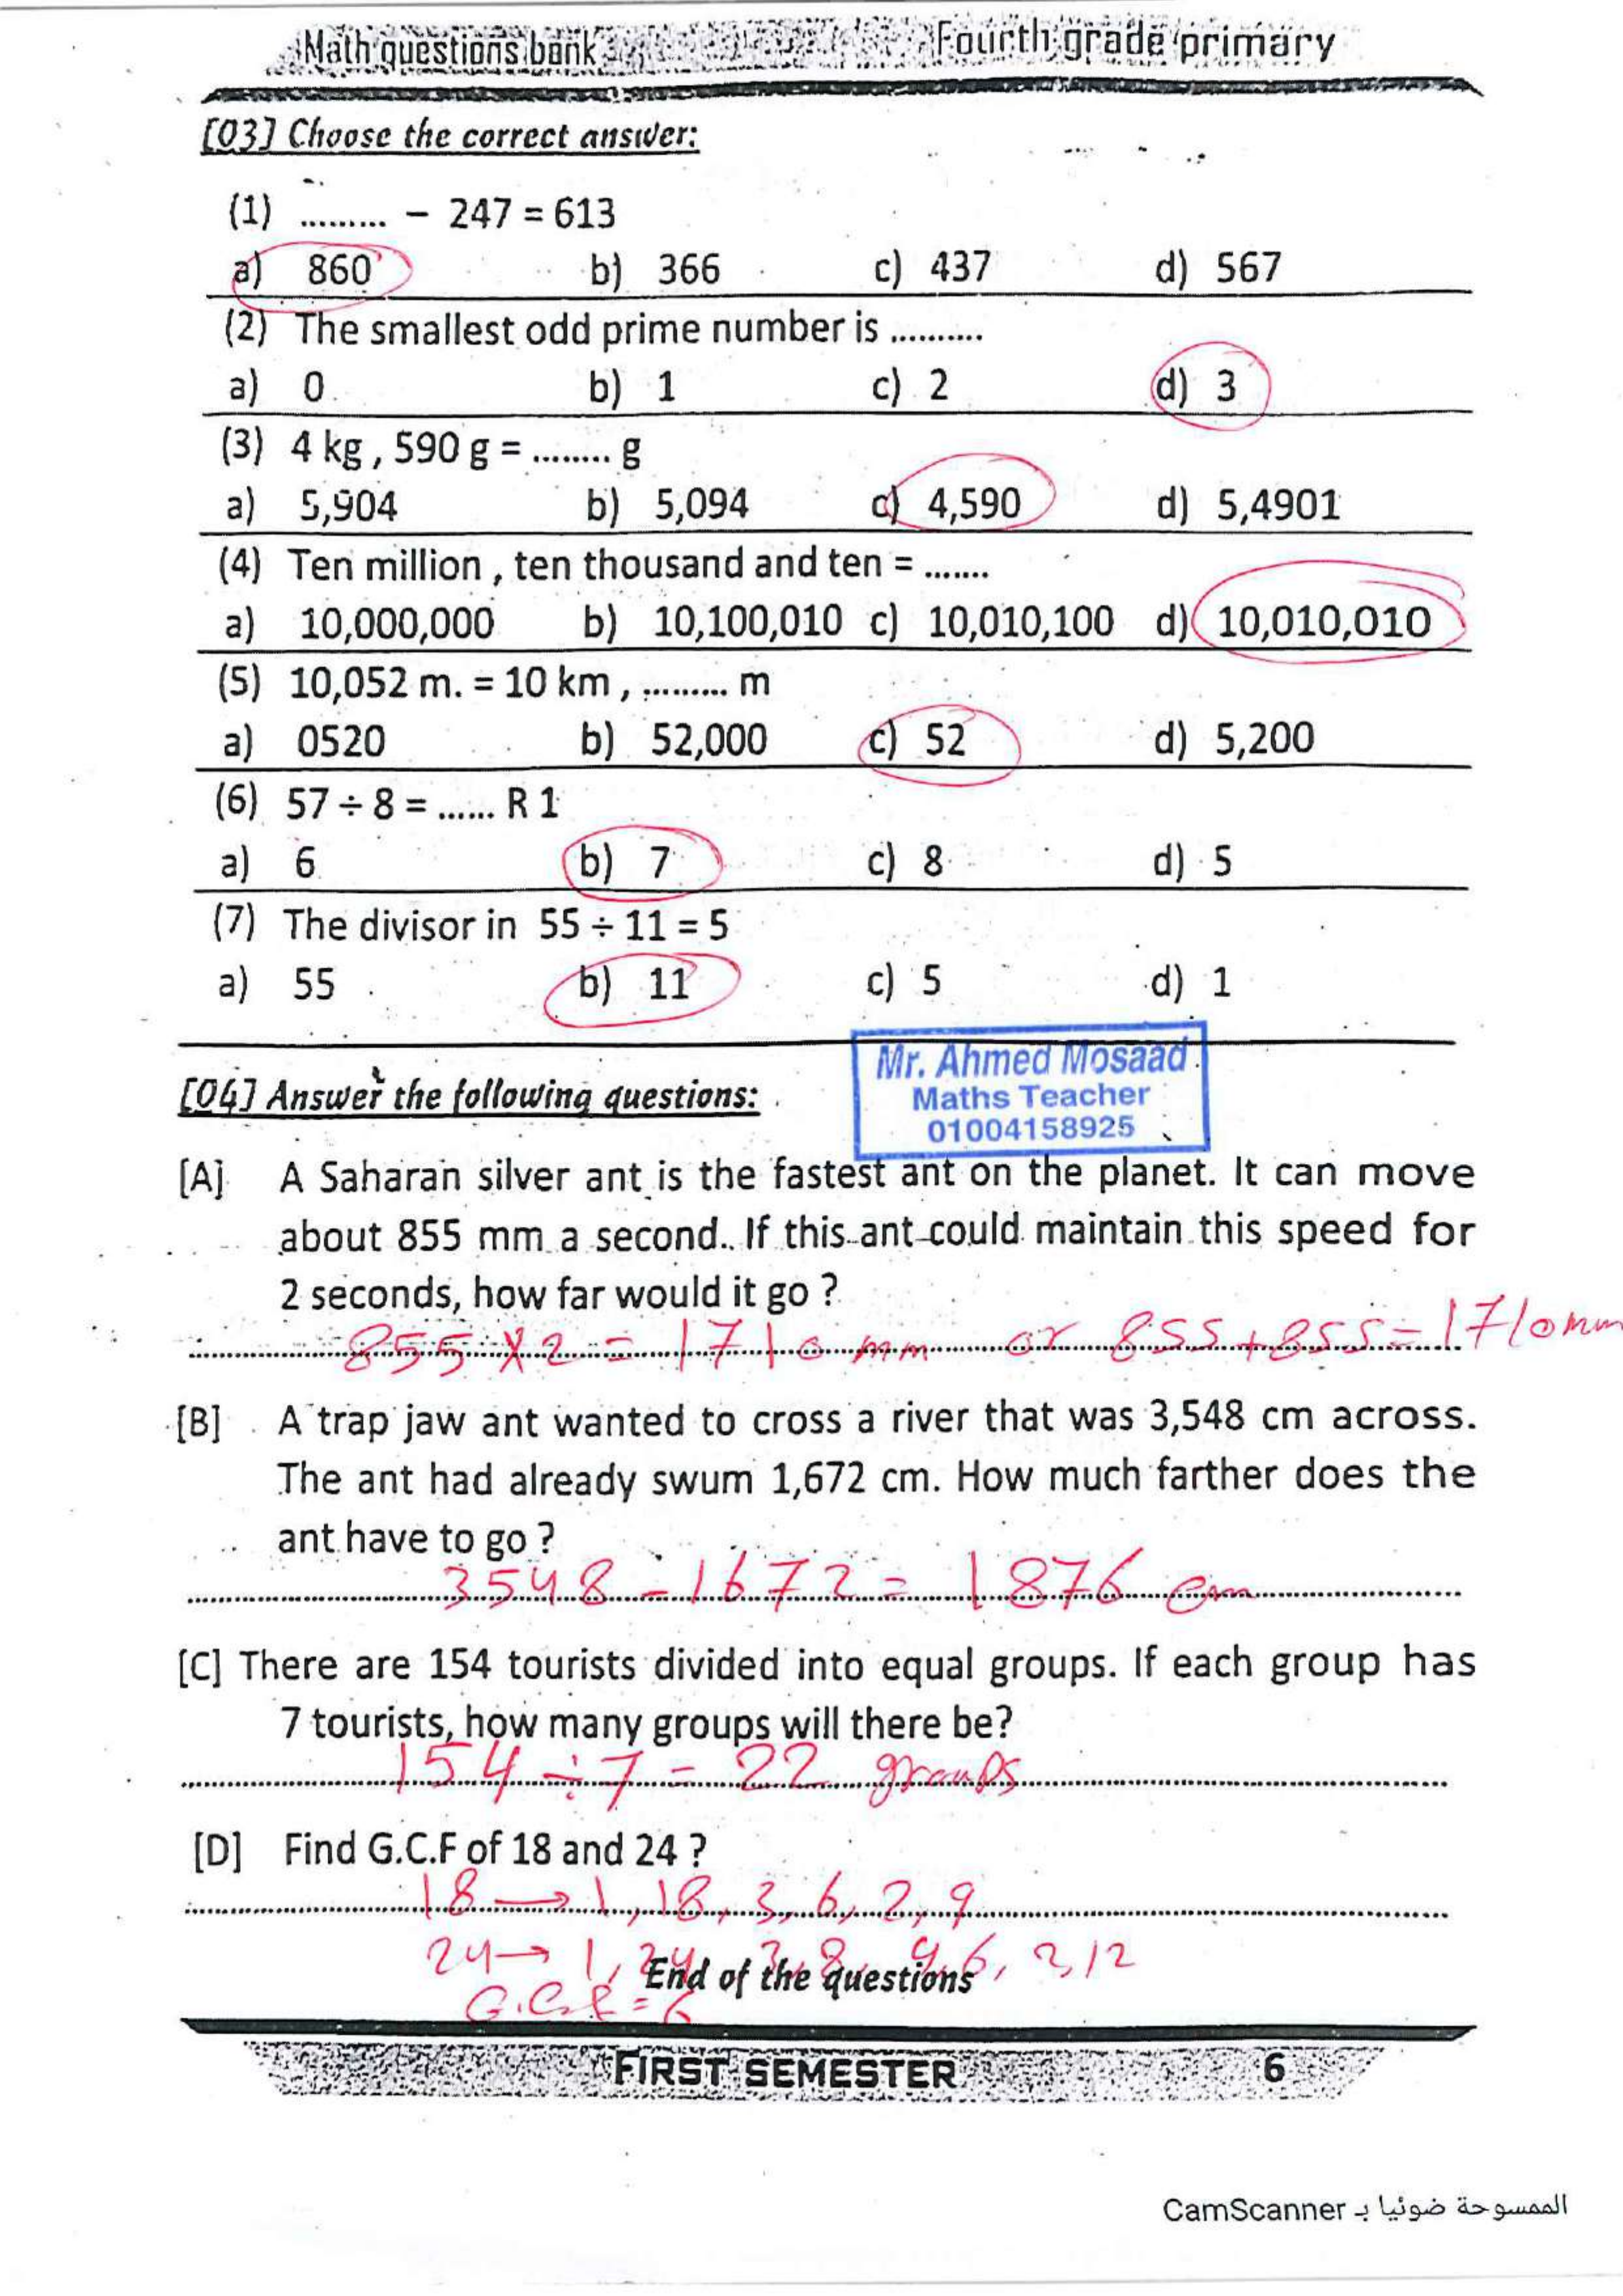 Math questions bank Fourth grade primary
[Q3] Choose the correct answer:
(1) ......... – 247 = 613
a) 860 b) 366 c) 437 d) 567
(2) The smallest odd prime number is ..........
a) 0 b) 1 c) 2 d) 3
(3) 4 kg , 590 g = ........ g
a) 5,904 b) 5,094 c) 4,590 d) 5,4901
(4) Ten million , ten thousand and ten = .......
a) 10,000,000 b) 10,100,010 c) 10,010,100 d) 10,010,010
(5) 10,052 m. = 10 km , ......... m
a) 0520 b) 52,000 c) 52 d) 5,200
(6) 57 ÷ 8 = ...... R 1
a) 6 b) 7 c) 8 d) 5
(7) The divisor in 55 ÷ 11 = 5
a) 55 b) 11 c) 5 d) 1
Mr. Ahmed Mosaad
Maths Teacher
01004158925
[Q4] Answer the following questions:
[A] A Saharan silver ant is the fastest ant on the planet. It can move
about 855 mm a second. If this ant could maintain this speed for
2 seconds, how far would it go ?
855 × 2 = 1710 mm or 855 + 855 = 1710 mm
[B] A trap jaw ant wanted to cross a river that was 3,548 cm across.
The ant had already swum 1,672 cm. How much farther does the
ant have to go ?
3548 - 1672 = 1876 cm
[C] There are 154 tourists divided into equal groups. If each group has
7 tourists, how many groups will there be?
154 ÷ 7 = 22 groups
[D] Find G.C.F of 18 and 24 ?
18 → 1, 18, 3, 6, 2, 9
24 → 1, 24, 3, 8, 4, 6, 2, 12
End of the questions
G.C.F = 6
FIRST SEMESTER 6
الممسوحة ضوئيا بـ CamScanner